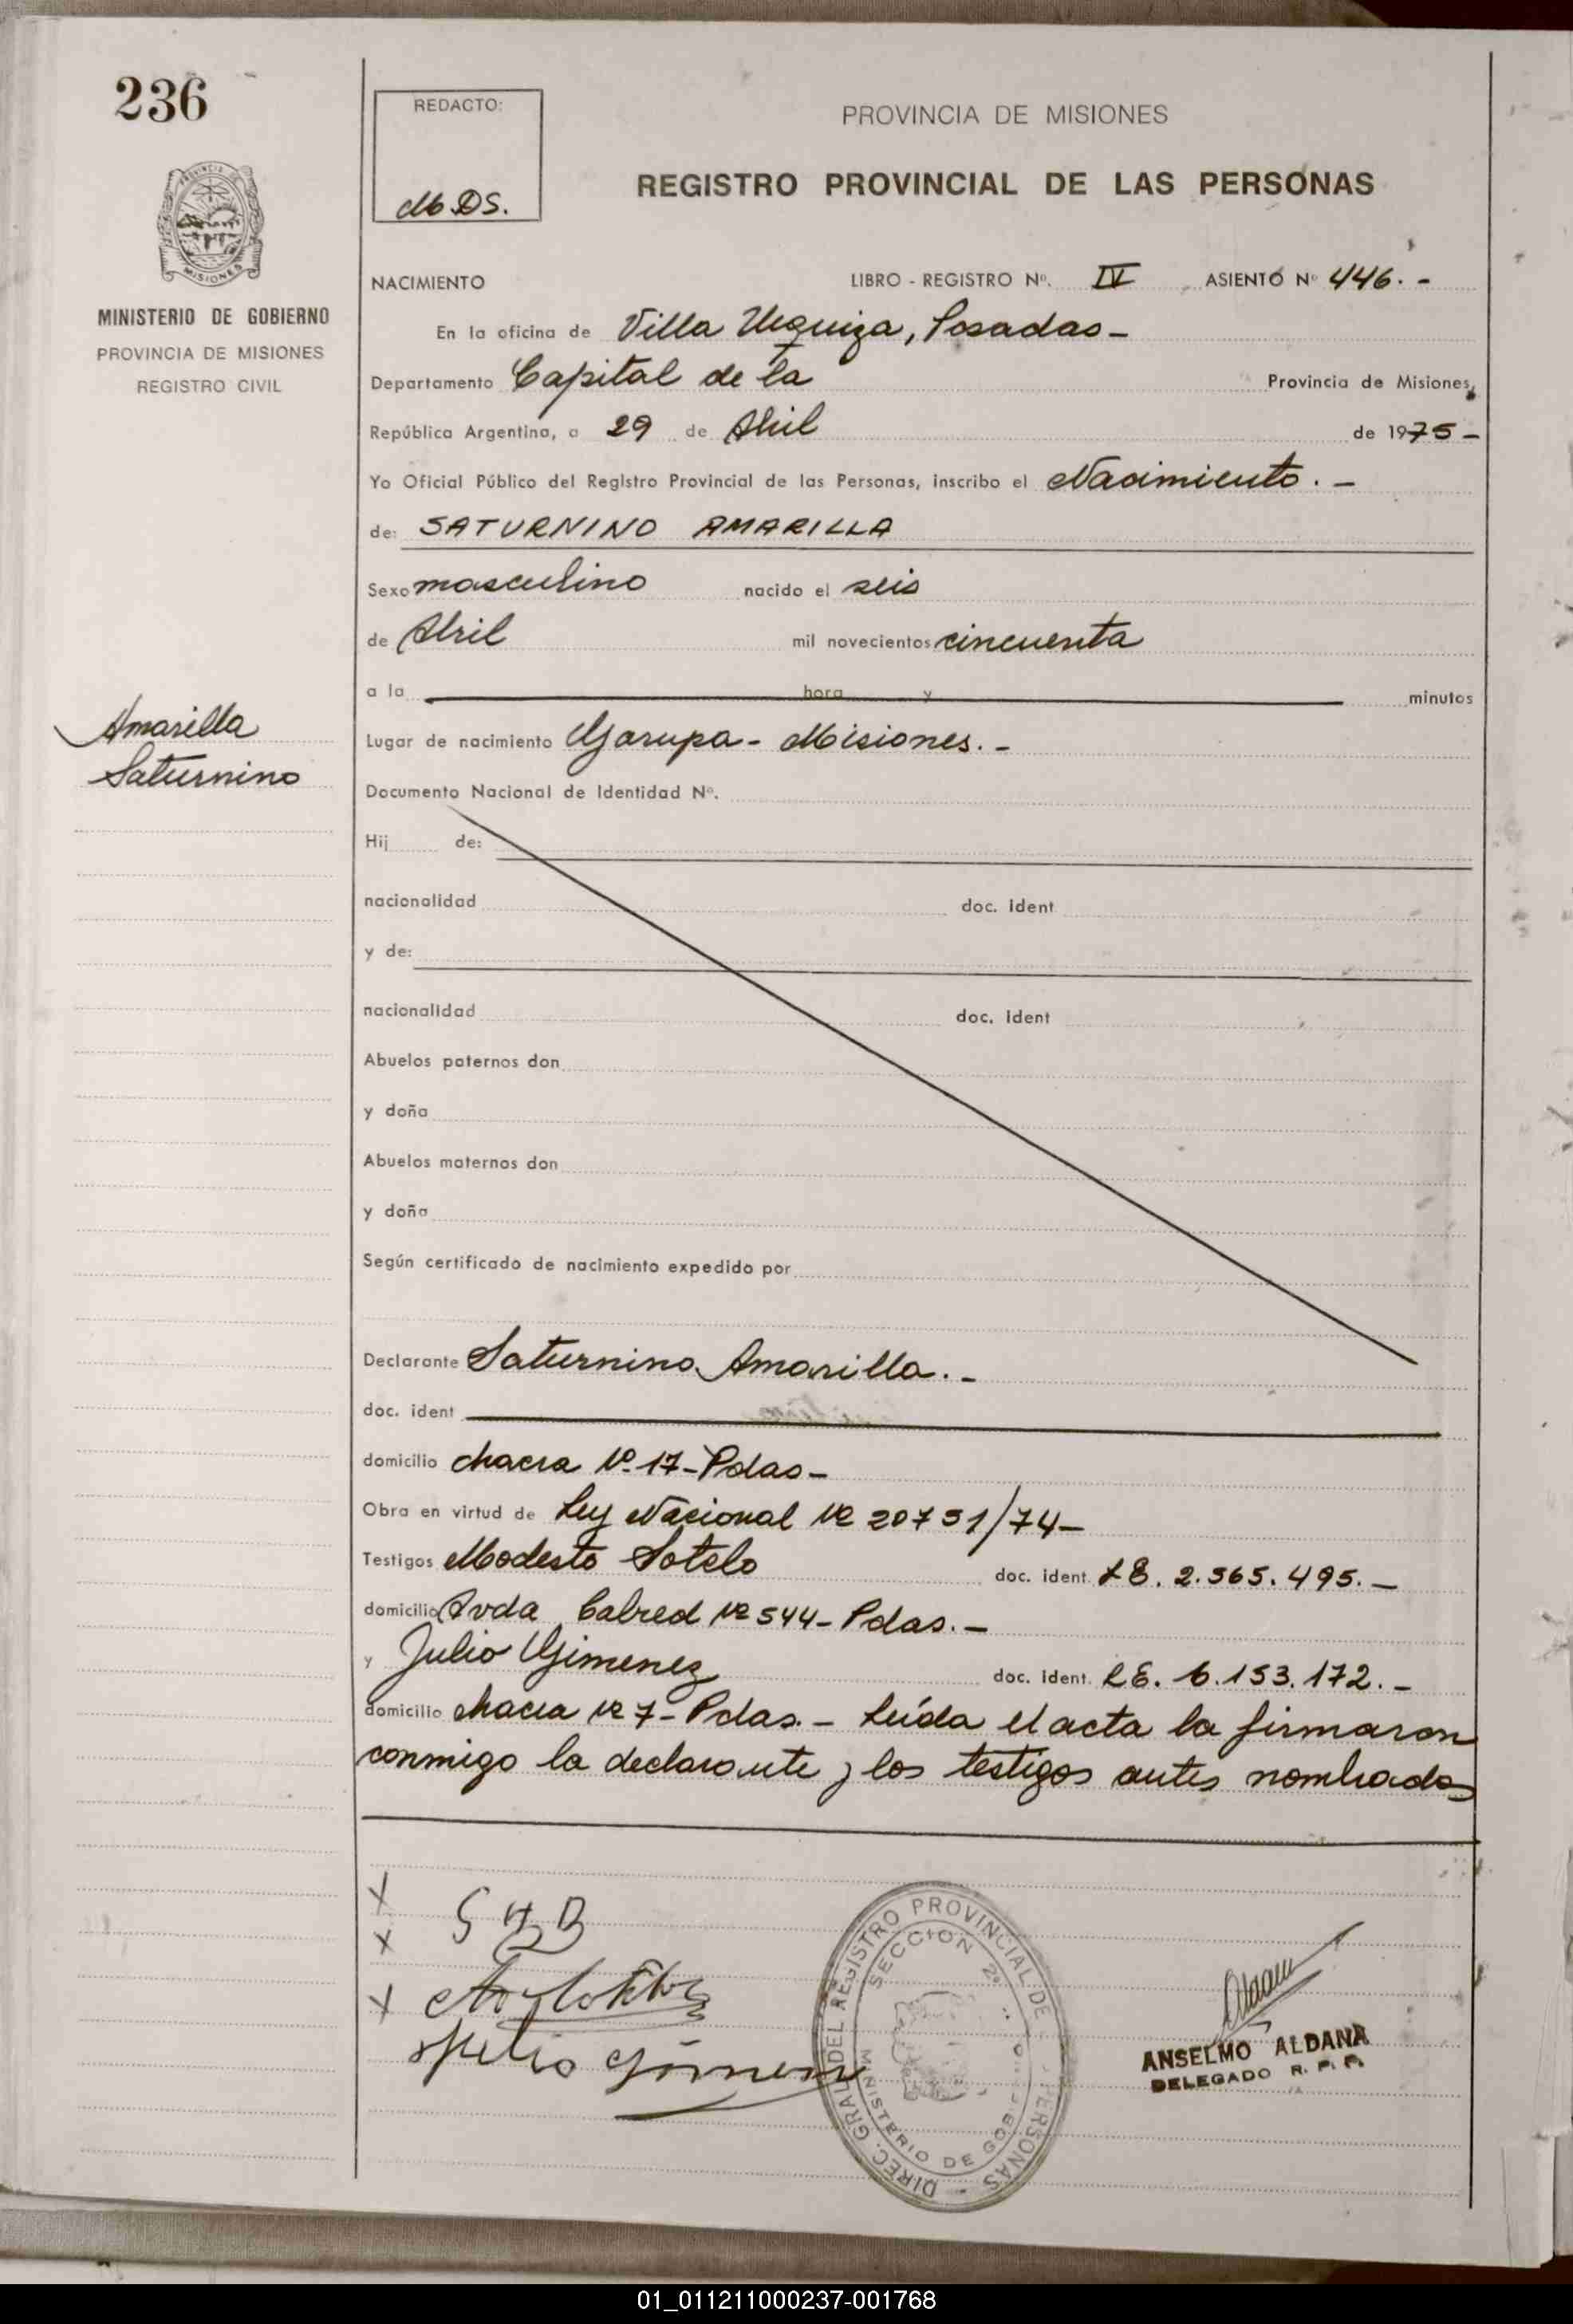 236
REDACTO:
M.DS.
PROVINCIA DE MISIONES
REGISTRO PROVINCIAL DE LAS PERSONAS
MISIONES
MINISTERIO DE GOBIERNO
PROVINCIA DE MISIONES
REGISTRO CIVIL
NACIMIENTO LIBRO - REGISTRO Nº. IV ASIENTO Nº 446. -
En la oficina de Villa Urquiza, Posadas -
Departamento Capital de la Provincia de Misiones,
República Argentina, a 29 de Abril de 1975 -
Yo Oficial Público del Registro Provincial de las Personas, inscribo el Nacimiento. -
de: SATURNINO AMARILLA
Sexo masculino nacido el seis
de Abril mil novecientos cincuenta
a la hora y minutos
Amarilla
Saturnino
Lugar de nacimiento Garupa - Misiones. -
Documento Nacional de Identidad Nº.
Hij de:
nacionalidad doc. ident
y de:
nacionalidad doc. ident
Abuelos paternos don
y doña
Abuelos maternos don
y doña
Según certificado de nacimiento expedido por
Declarante Saturnino Amarilla. -
doc. ident
domicilio chacra Nº 17 - Pdas -
Obra en virtud de Ley Nacional Nº 20751/74 -
Testigos Modesto Sotelo doc. ident. LE. 2.365.495. -
domicilio Avda Cabred Nº 544 - Pdas. -
y Julio Gimenez doc. ident. LE. 6.153.172. -
domicilio chacra Nº 7 - Pdas. - Leída el acta la firmaron
conmigo la declarante y los testigos antes nombrados
X
X
X
DIREC. GRAL. DEL REGISTRO PROVINCIAL DE PERSONAS
SECCION 2º
MINISTERIO DE GOBIE
ANSELMO ALDANA
DELEGADO R. P. P.
01_011211000237-001768